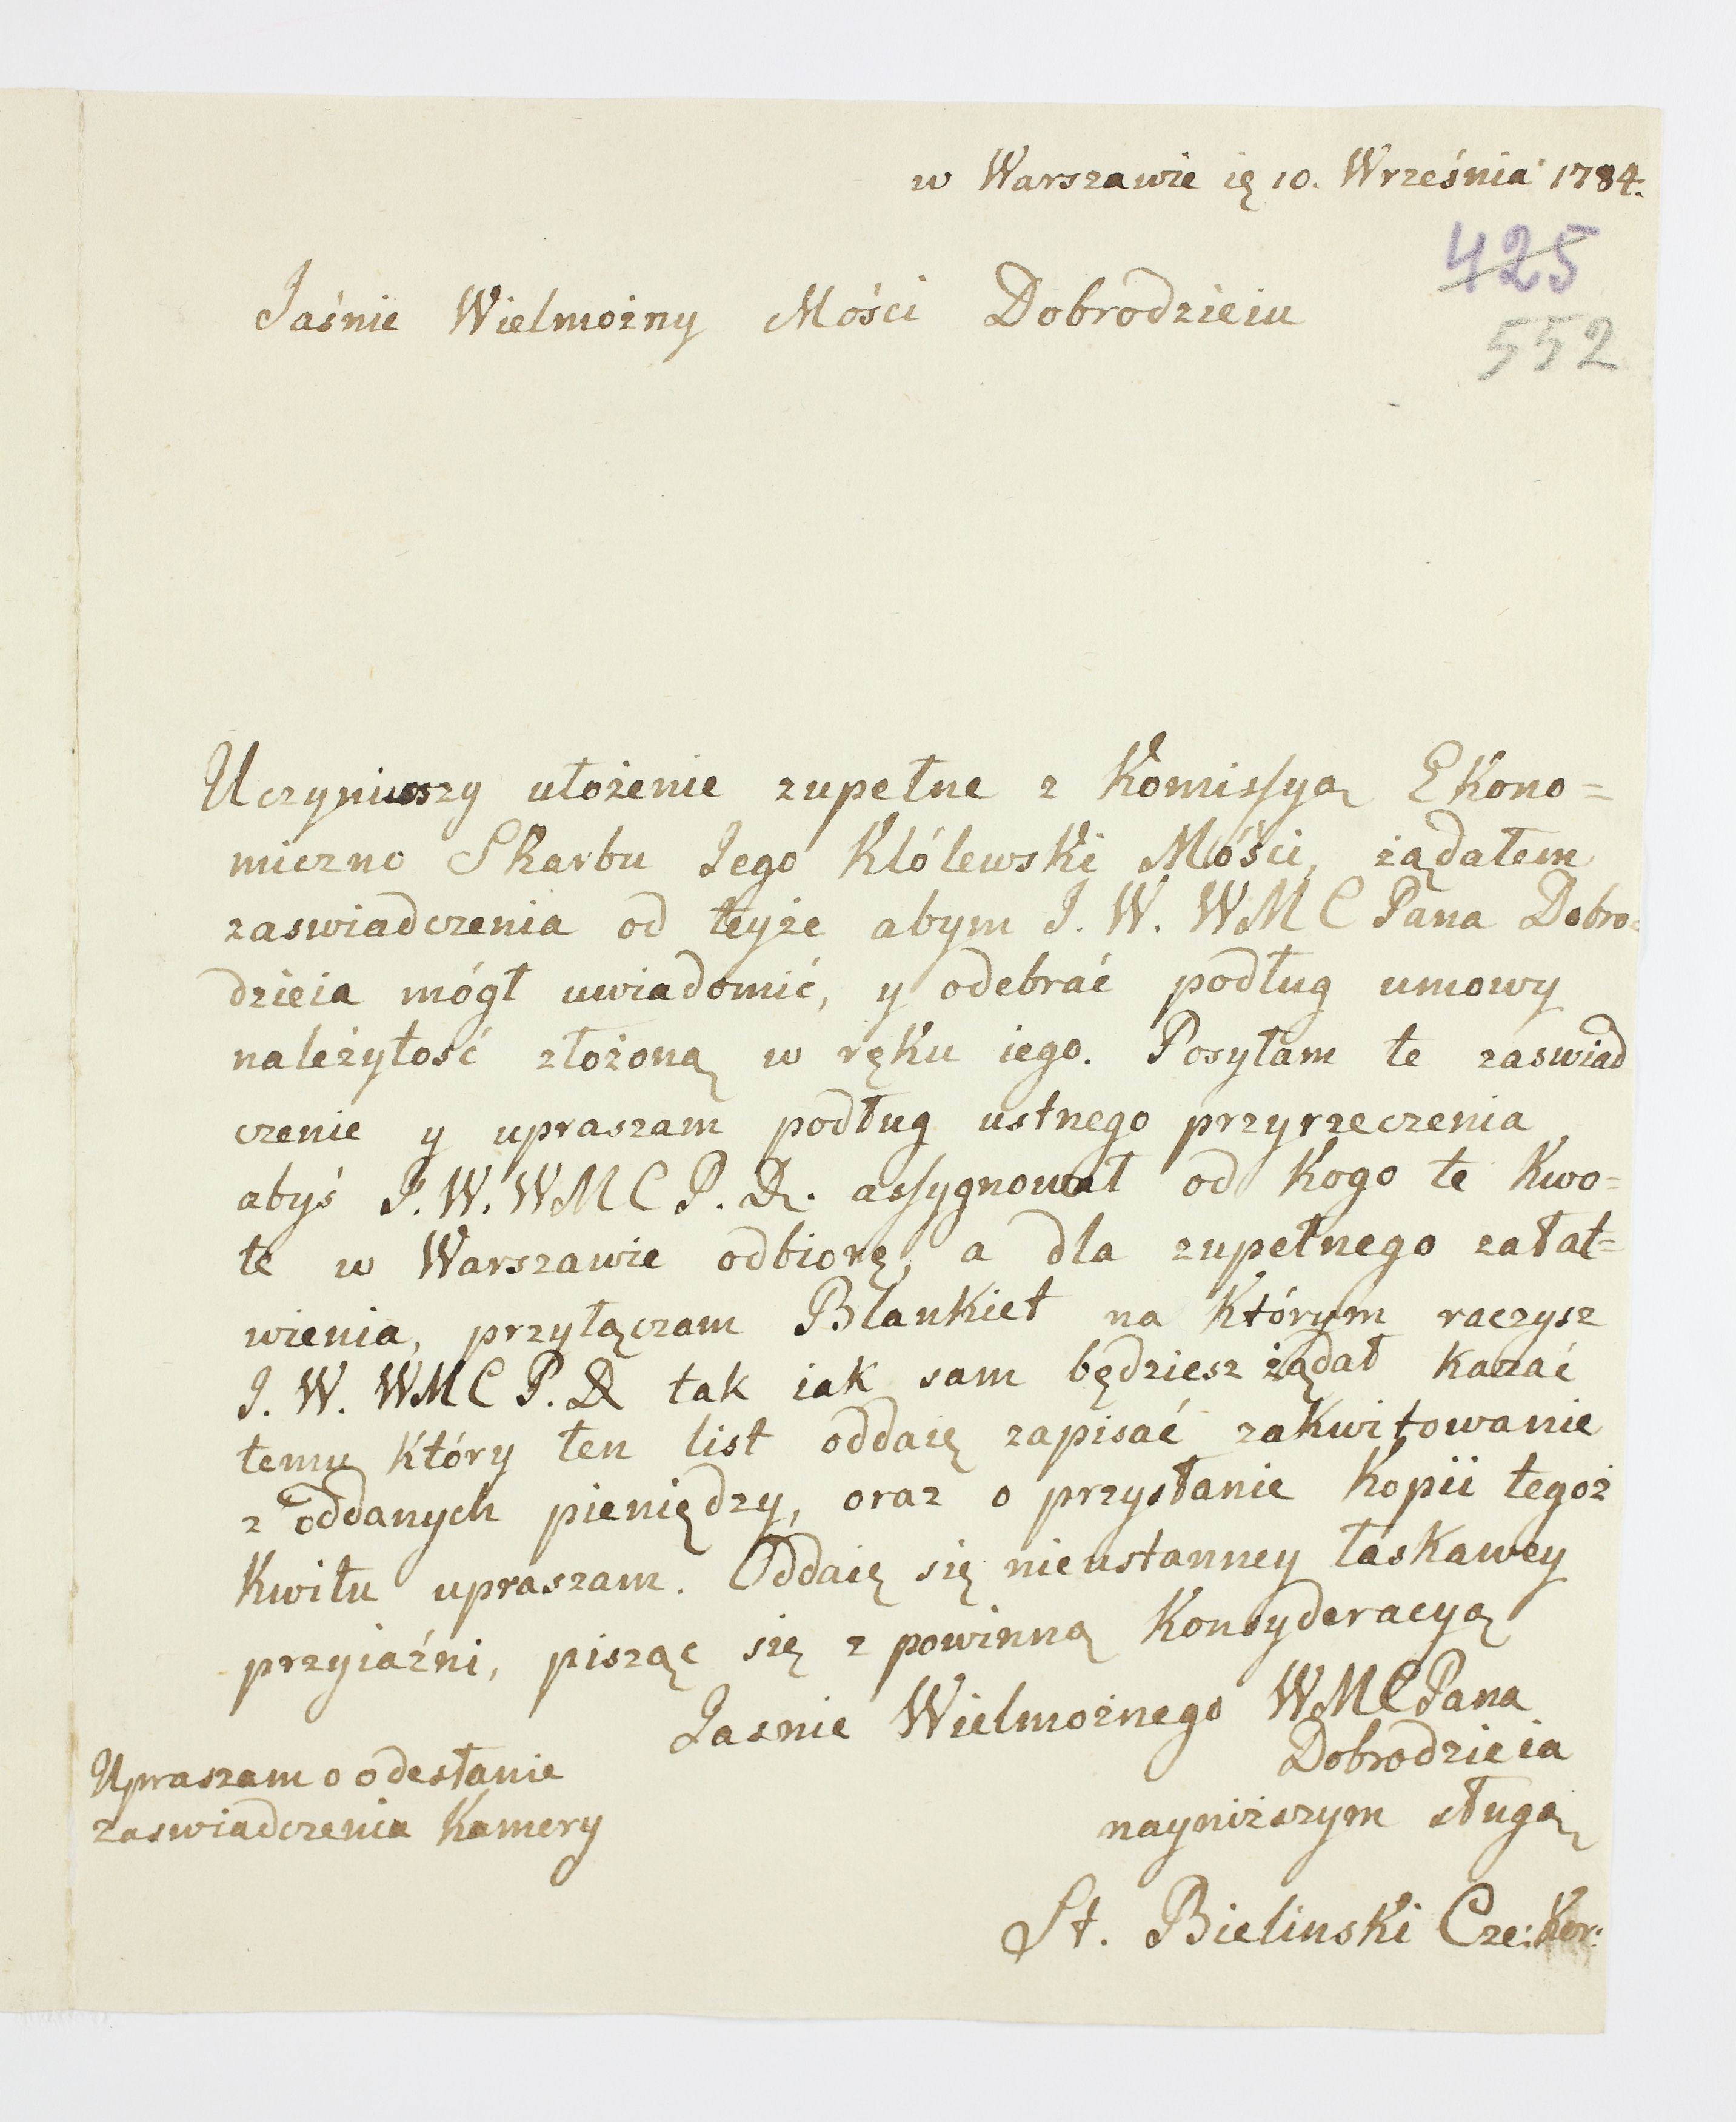 w Warszawie ię 10. Września 1784.
425
552
Jaśnie Wielmożny Mości Dobrodzieiu
Uczyniwszy ułożenie zupełne z Komissyą Ekono=
miczno Skarbu Jego Klólewski Mości, żądałem
zaswiadczenia od teyże abym J. W. WMC Pana Dobro=
dzieia mógł uwiadomić, y odebrać podług umowy
należytość złożoną w ręku iego. Posyłam te zaswiad
czenie y upraszam podług ustnego przyrzeczenia
abyś J. W. WMC P. D. assygnował od Kogo te Kwo=
te w Warszawie odbiorę, a dla zupełnego załat=
wienia, przyłączam Blankiet na Którym raczysz
J. W. WMC P. D tak iak sam będziesz żądał Kazać
temu Który ten list oddaię zapisać zakwitowanie
z oddanych pieniędzy, oraz o przysłanie Kopii tegoż
Kwitu upraszam. Oddaię się nieustanney łaskawey
przyiaźni, pisząc się z powinną Konsyderacyą
Jasnie Wielmożnego WMCPana
Dobrodzieia
nayniższym sługą
St. Bielinski Cze: Kor:
Upraszam o odesłanie
zaswiadczenia Kamery